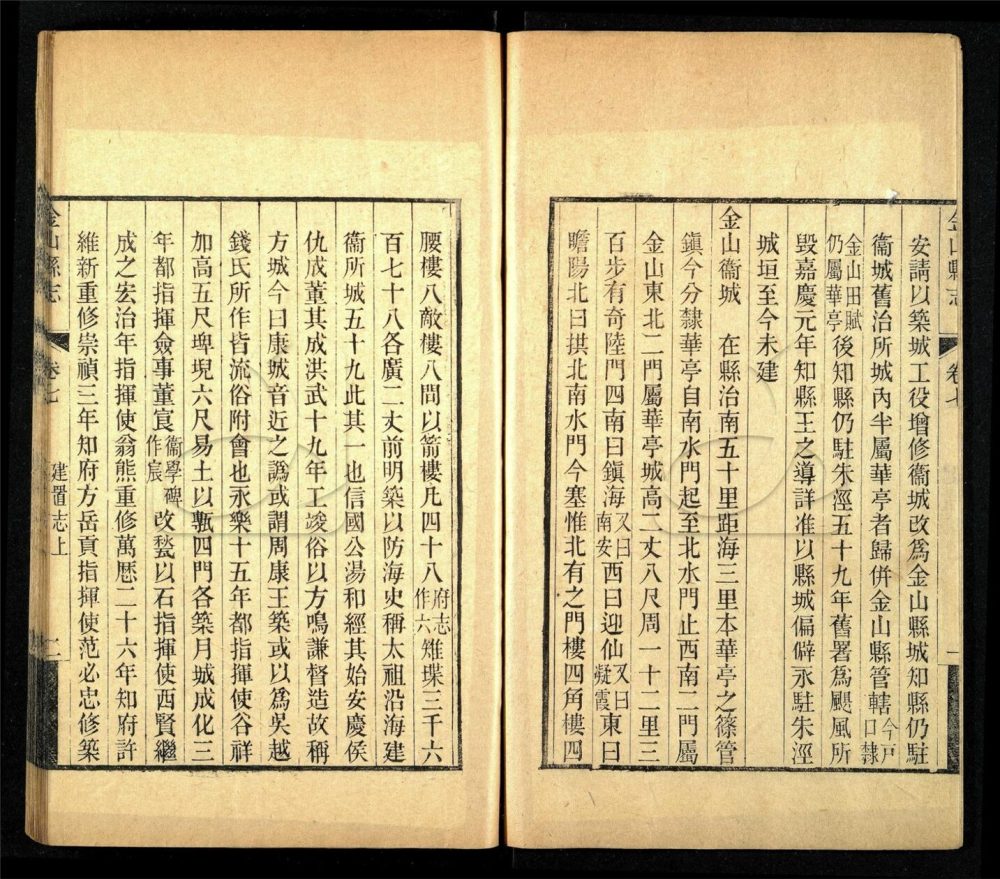 金山縣志　卷七
安請以築城工役增修衞城改爲金山縣城知縣仍駐
衞城舊治所城內半屬華亭者歸併金山縣管轄今戸口隸
金山田賦仍屬華亭後知縣仍駐朱涇五十九年舊署爲颶風所
毀嘉慶元年知縣王之導詳准以縣城偏僻永駐朱涇
城垣至今未建
金山衞城　在縣治南五十里距海三里本華亭之篠管
鎭今分隸華亭自南水門起至北水門止西南二門屬
金山東北二門屬華亭城高二丈八尺周一十二里三
百步有奇陸門四南曰鎭海又曰南安西曰迎仙又曰凝霞東曰
瞻陽北曰拱北南水門今塞惟北有之門樓四角樓四
腰樓八敵樓八問以箭樓凡四十八府志作六雉堞三千六
百七十八各廣二丈前明築以防海史稱太祖沿海建
衞所城五十九此其一也信國公湯和經其始安慶侯
仇成董其成洪武十九年工竣俗以方鳴謙督造故稱
方城今曰康城音近之譌或謂周康王築或以爲吳越
錢氏所作皆流俗附會也永樂十五年都指揮使谷祥
加高五尺埤堄六尺易土以甎四門各築月城成化三
年都指揮僉事董㝡衞學碑作宸改甃以石指揮使西賢繼
成之宏治年指揮使翁熊重修萬歷二十六年知府許
維新重修崇禎三年知府方岳貢指揮使范必忠修築
金山縣志　卷七　建置志上　二